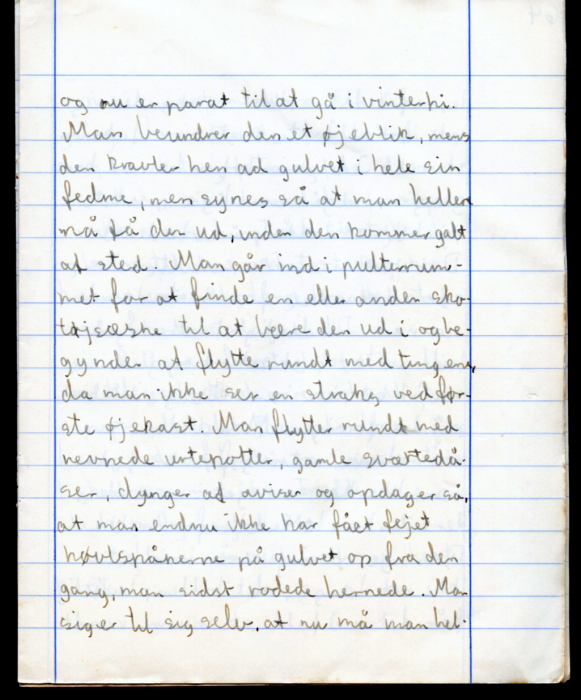 og nu er parat til at gå i vinterhi.
Man beundrer den et øjeblik, mens
den kravler hen ad gulvet i hele sin
fedme, men synes så at man heller
må få den ud, inden den kommer galt
af sted. Man går ind i pulterrum-
met for at finde en eller anden sko-
tøjsæske til at bære den ud i og be-
gynder at flytte rundt med tingene,
da man ikke ser en straks ved før-
ste øjekast. Man flytter rundt med
revnede urtepotter, gamle sværtedå-
ser, dynger af aviser og opdager så,
at man endnu ikke har fået fejet
høvlspånerne på gulvet op fra den
gang, man sidst rodede hernede. Man
siger til sig selv, at nu må man hel-